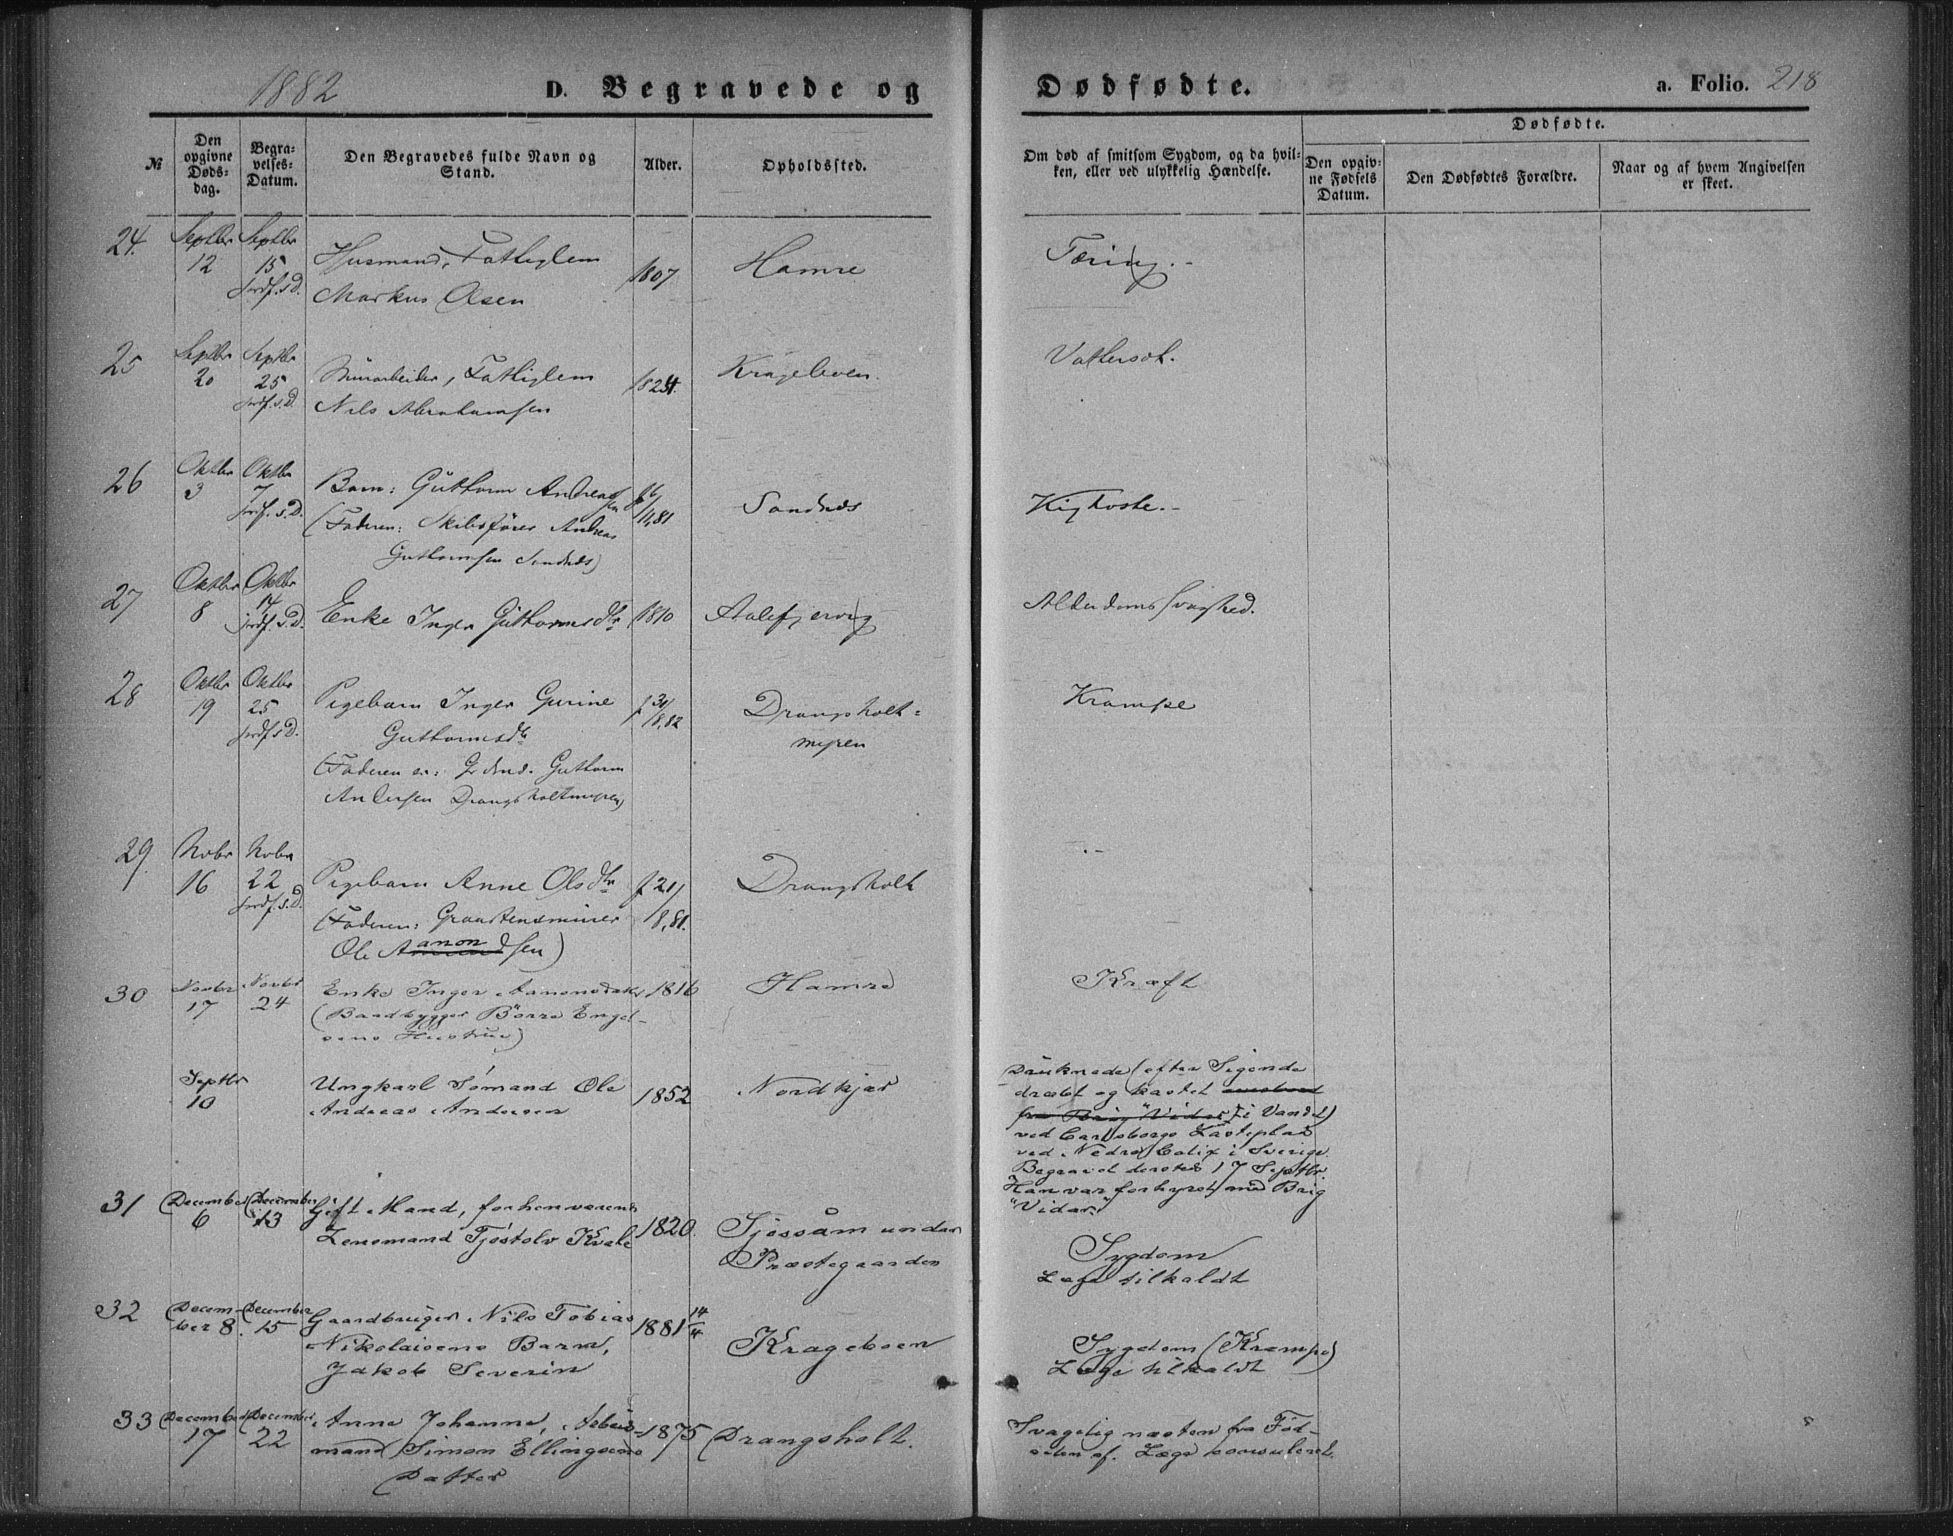 1882
D. Begravede og Dødfødte.
a. Folio. 218
№
Den opgivne Døds-dag.
Begra-velses-Datum.
Den Begravedes fulde Navn og Stand.
Alder.
Opholdssted.
Om død af smitsom Sygdom, og da hvil-
ken, eller ved ulykkelig Hændelse.
Dødfødte.
Den opgiv-ne Fødsels Datum.
Den Dødfødtes Forældre.
Naar og af hvem Angivelsen er skeet.
24. Septbr 12 Septbr 15 Jordf. s.D.
Husmand, Fattiglem
Markus Olsen
1807 Hamre Tæring.
25 Septbr 20 Septbr 25 Jordf. s.D.
Minarbeider, Fattiglem
Nils Abrahamsen
1824. Krageboen. Vattersot.
26 Oktbr 3 Oktbr 7 Jordf. s.D.
Barn: Guthorm Andreassen
(Faderen: Skibsfører Andreas
Guthormsen Sandnes)
f 6/11,81 Sandnes Kighoste.
27 Oktbr 8 Oktbr 14 Jordf. s.D.
Enke Inger Guthormsdtr
1810 Aalefjervig Alderdomssvaghed.
28 Oktbr 19 Oktbr 25 Jordf. s.D.
Pigebarn Inger Gurine
Guthormsdtr
(Faderen er: Grdmd. Guthorm
Andersen Drangsholtmyren)
8,82 Drangsholt=
myren
Krampe
29. Novbr 16 Novbr 22 Jordf. s.D.
Pigebarn Anne Olsdtr
(Faderen: Graastensminer
Ole Aanonsen)
f 21/8,81. Drangsholt
30 Novbr 17 Novbr 24
Enke Inger Aanonsdatr
(Baadbygger Börre Engel-
sens Hustrue)
1816 Hamre Kræft
Septbr 10
Ungkarl Sömand Ole
Andreas Andersen
1852 Nordkjær
Druknede (efter Sigende
dræbt og kastet
fra Brig "Vidar" i Vandet)
ved Carlsborgs Lasteplads
ved Nedre Calix i Sverige.
Begravet dersteds 17 Septbr.
Han var forhyret med Brig
"Vidar"
31 December 6 December 13
Gift Mand, forhenværende
Lensmand Tjöstolv Kvale
1820. Tjossåm under
Præstegaarden
Sygdom
Læge tilkaldt
32 Decem-ber 8. December 15
Gaardbruger Nils Tobias
Nikolaisens Barn,
Jakob Severin
1881 14/4 Krageboen
Sygdom (Krampe)
Læge tilkaldt
33 December 17 December 22
Anne Johanne, Arbeids-
mand Simon Ellingsens
Datter
1875 Drangsholt.
Svagelig næsten fra Föd-
selen af. Læge konsuleret.